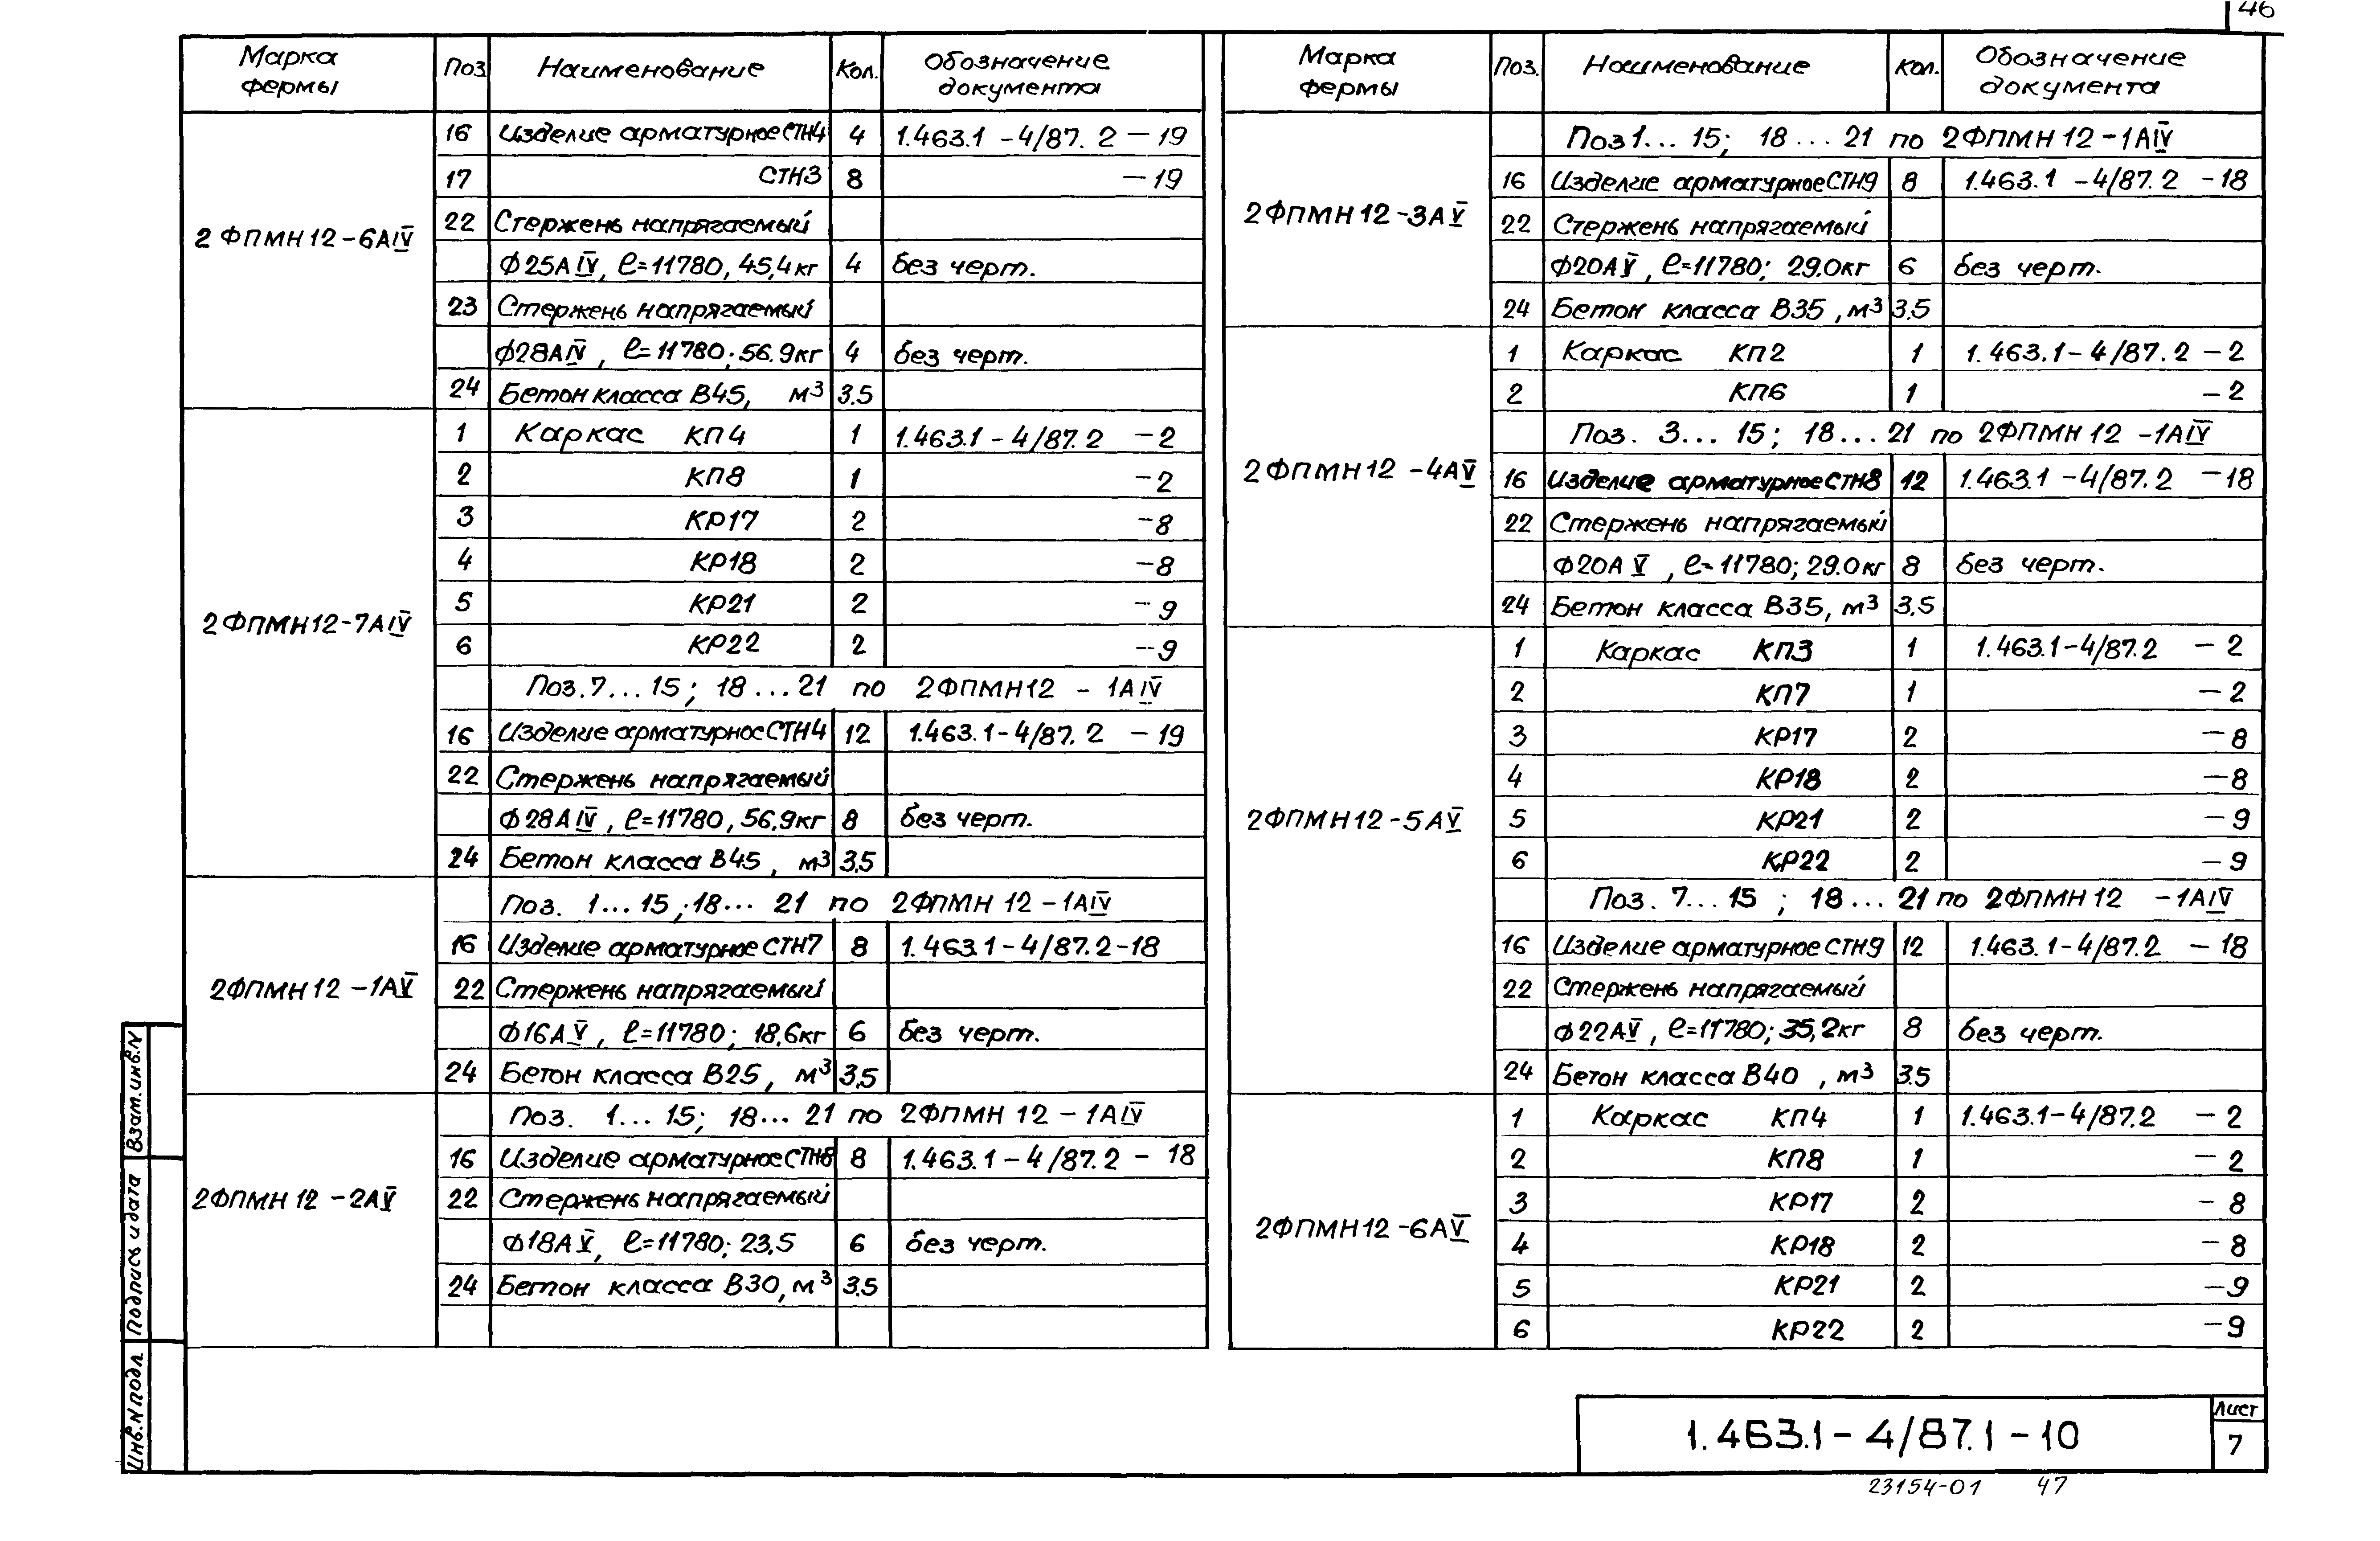 46
Марка фермы | Поз | Наименование | Кол. | Обозначение документа
2ФПМН12-6АIV
16 | Изделие арматурное СТН4 | 4 | 1.463.1-4/87.2-19
17 | СТН3 | 8 | -19
22 | Стержень напрягаемый
Ф25АIV, ℓ=11780, 45,4кг | 4 | без черт.
23 | Стержень напрягаемый
Ф28АIV, ℓ=11780; 56.9кг | 4 | без черт.
24 | Бетон класса В45, м³ | 3.5
2ФПМН12-7АIV
1 | Каркас КП4 | 1 | 1.463.1-4/87.2-2
2 | КП8 | 1 | -2
3 | КР17 | 2 | -8
4 | КР18 | 2 | -8
5 | КР21 | 2 | -9
6 | КР22 | 2 | -9
Поз.7...15; 18...21 по 2ФПМН12-1АIV
16 | Изделие арматурное СТН4 | 12 | 1.463.1-4/87.2-19
22 | Стержень напрягаемый
Ф28АIV, ℓ=11780, 56,9кг | 8 | без черт.
24 | Бетон класса В45, м³ | 3,5
2ФПМН12-1АV
Поз. 1...15; 18... 21 по 2ФПМН12-1АIV
16 | Изделие арматурное СТН7 | 8 | 1.463.1-4/87.2-18
22 | Стержень напрягаемый
Ф16АV, ℓ=11780; 18,6кг | 6 | без черт.
24 | Бетон класса В25, м³ | 3,5
2ФПМН12-2АV
Поз. 1...15; 18...21 по 2ФПМН12-1АIV
16 | Изделие арматурное СТН8 | 8 | 1.463.1-4/87.2-18
22 | Стержень напрягаемый
Ф18АV, ℓ=11780; 23,5 | 6 | без черт.
24 | Бетон класса В30, м³ | 3.5
Марка фермы | Поз. | Наименование | Кол. | Обозначение документа
2ФПМН12-3АV
Поз 1...15; 18...21 по 2ФПМН12-1АIV
16 | Изделие арматурное СТН9 | 8 | 1.463.1-4/87.2-18
22 | Стержень напрягаемый
Ф20АV, ℓ=11780; 29.0кг | 6 | без черт.
24 | Бетон класса В35, м³ | 3.5
2ФПМН12-4АV
1 | Каркас КП2 | 1 | 1.463.1-4/87.2-2
2 | КП6 | 1 | -2
Поз. 3...15; 18...21 по 2ФПМН12-1АIV
16 | Изделие арматурное СТН8 | 12 | 1.463.1-4/87.2-18
22 | Стержень напрягаемый
Ф20АV, ℓ=11780; 29.0кг | 8 | без черт.
24 | Бетон класса В35, м³ | 3.5
2ФПМН12-5АV
1 | Каркас КП3 | 1 | 1.463.1-4/87.2-2
2 | КП7 | 1 | -2
3 | КР17 | 2 | -8
4 | КР18 | 2 | -8
5 | КР21 | 2 | -9
6 | КР22 | 2 | -9
Поз. 7...15; 18...21 по 2ФПМН12-1АIV
16 | Изделие арматурное СТН9 | 12 | 1.463.1-4/87.2-18
22 | Стержень напрягаемый
Ф22АV, ℓ=11780; 35,2кг | 8 | без черт.
24 | Бетон класса В40, м³ | 3.5
2ФПМН12-6АV
1 | Каркас КП4 | 1 | 1.463.1-4/87.2-2
2 | КП8 | 1 | -2
3 | КР17 | 2 | -8
4 | КР18 | 2 | -8
5 | КР21 | 2 | -9
6 | КР22 | 2 | -9
Взам.инв.N
Подпись и дата
Инв.N подл.
1.463.1-4/87.1-10
Лист
7
23154-01 47